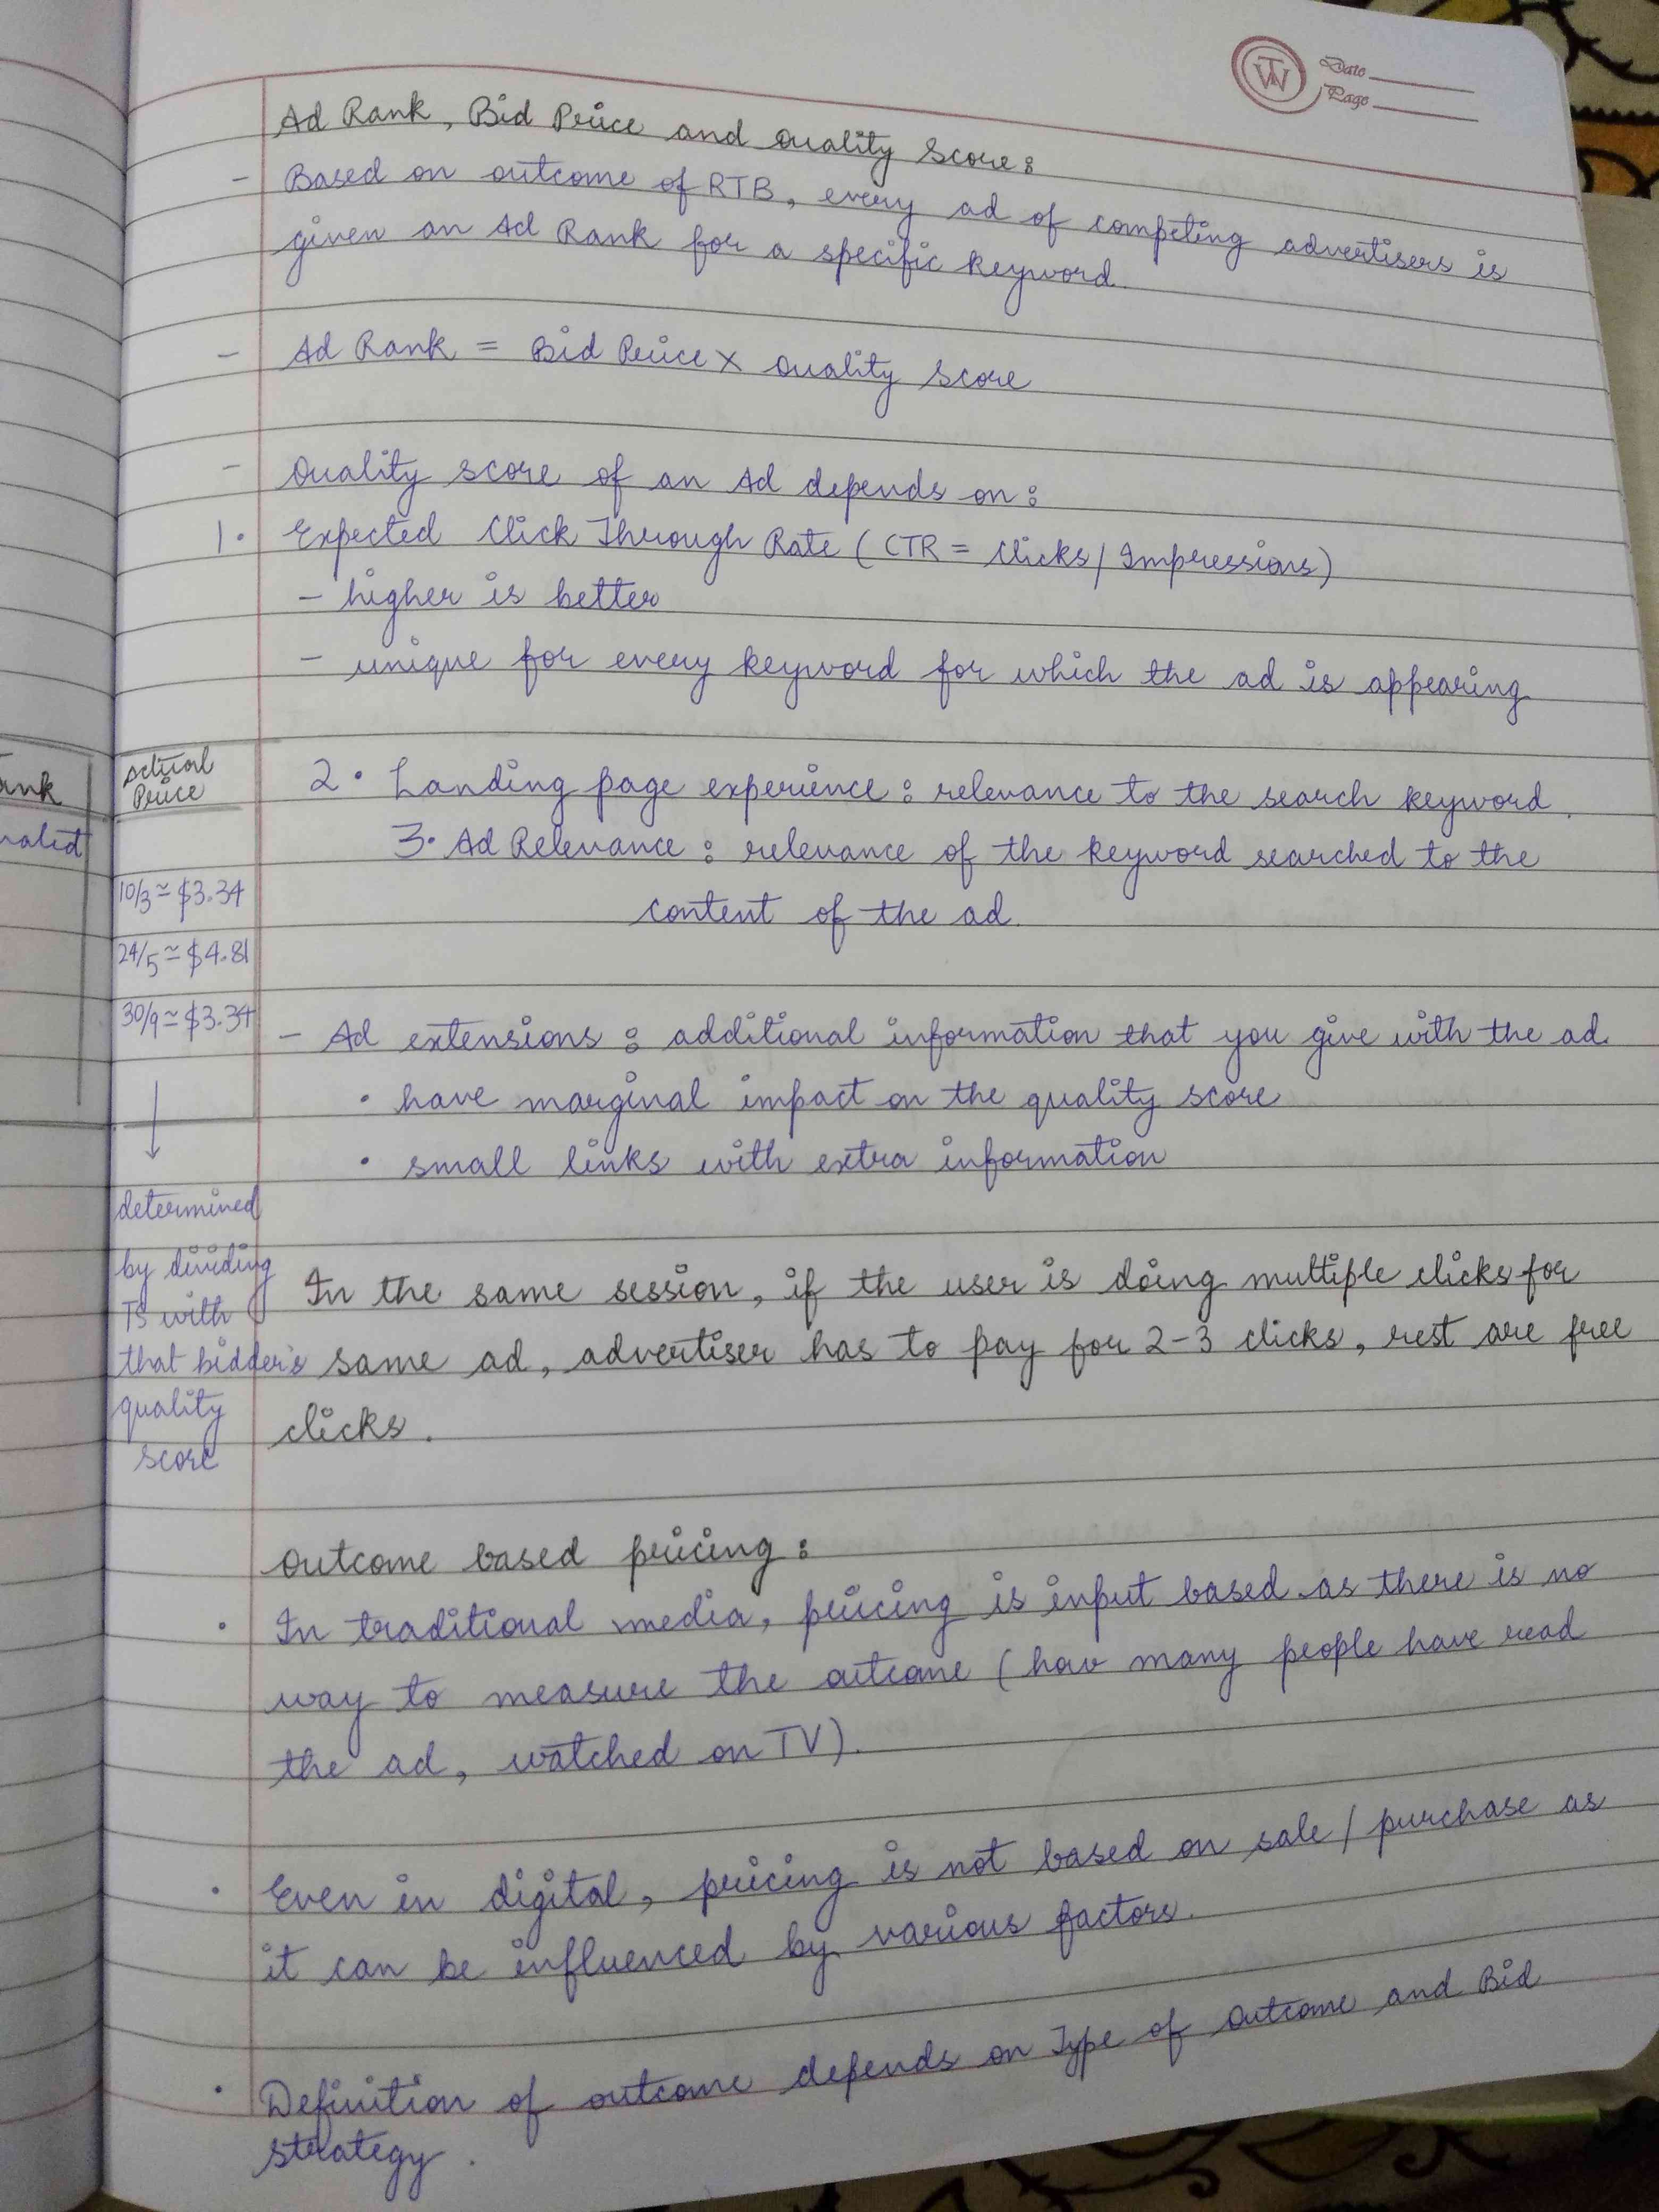 Date
Page
Ad Rank, Bid Price and Quality Score:
- Based on outcome of RTB, every ad of competing advertisers is
given an Ad Rank for a specific keyword.
- Ad Rank = Bid Price x Quality Score
- Quality score of an Ad depends on:
1. Expected Click Through Rate (CTR = Clicks/Impressions)
- higher is better
- unique for every keyword for which the ad is appearing
2. Landing page experience: relevance to the search keyword.
3. Ad Relevance: relevance of the keyword searched to the
content of the ad.
- Ad extensions: additional information that you give with the ad.
• have marginal impact on the quality score
• small links with extra information
In the same session, if the user is doing multiple clicks for
same ad, advertiser has to pay for 2-3 clicks, rest are free
clicks.
Outcome based pricing:
• In traditional media, pricing is input based as there is no
way to measure the outcome (how many people have read
the ad, watched on TV).
• Even in digital, pricing is not based on sale/purchase as
it can be influenced by various factors.
• Definition of outcome depends on Type of Outcome and Bid
strategy.
Actual
Price
10/3 ≃ $3.34
24/5 ≃ $4.81
30/9 ≃ $3.34
determined
by dividing
TS with
that bidder's
quality
score